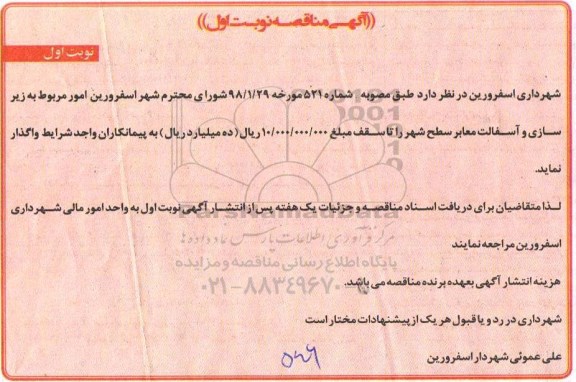 ((آگهی مناقصه نوبت اول))
نوبت اول
شهرداری اسفرورین در نظر دارد طبق مصوبه شماره ۵۲۱ مورخه ۹۸/۱/۲۹ شورای محترم شهر اسفرورین امور مربوط به زیر
سازی و آسفالت معابر سطح شهر را تا سقف مبلغ ۱۰/۰۰۰/۰۰۰/۰۰۰ ریال (ده میلیارد ریال) به پیمانکاران واجد شرایط واگذار
نماید.
لذا متقاضیان برای دریافت اسناد مناقصه و جزئیات یک هفته پس از انتشار آگهی نوبت اول به واحد امور مالی شهرداری
ParsNamadData
مرکز فرآوری اطلاعات پارس نماد داده ها
اسفرورین مراجعه نمایند
پایگاه اطلاع رسانی مناقصه و مزایده
هزینه انتشار آگهی بعهده برنده مناقصه می باشد.
۰۲۱-۸۸۳۴۹۶۷۰
شهرداری در رد و یا قبول هر یک از پیشنهادات مختار است
علی عموئی شهردار اسفرورین